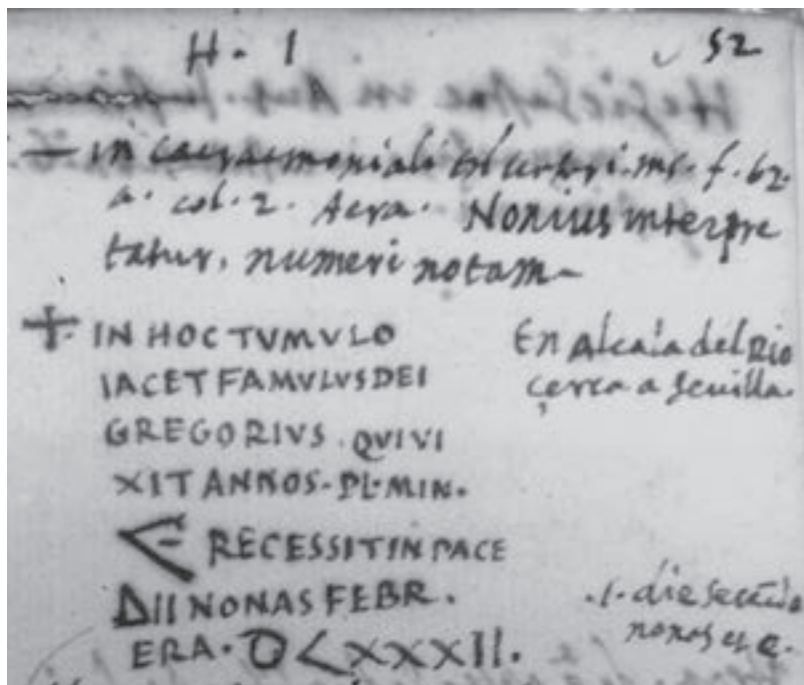 H. 1
52
— in caeraemoniali ms. f. 62.
a. col. 2. Aera. Nonius interpre
tatur, numeri notam—
+ IN HOC TVMVLO
IACET FAMVLVS DEI
GREGORIVS . QVI VI
XIT ANNOS. PL. MIN.
RECESSIT IN PACE
ΔII NONAS FEBR.
ERA. O<XXXII.
En Alcala del Rio
çerca a Seuilla.
.i. die secūdo